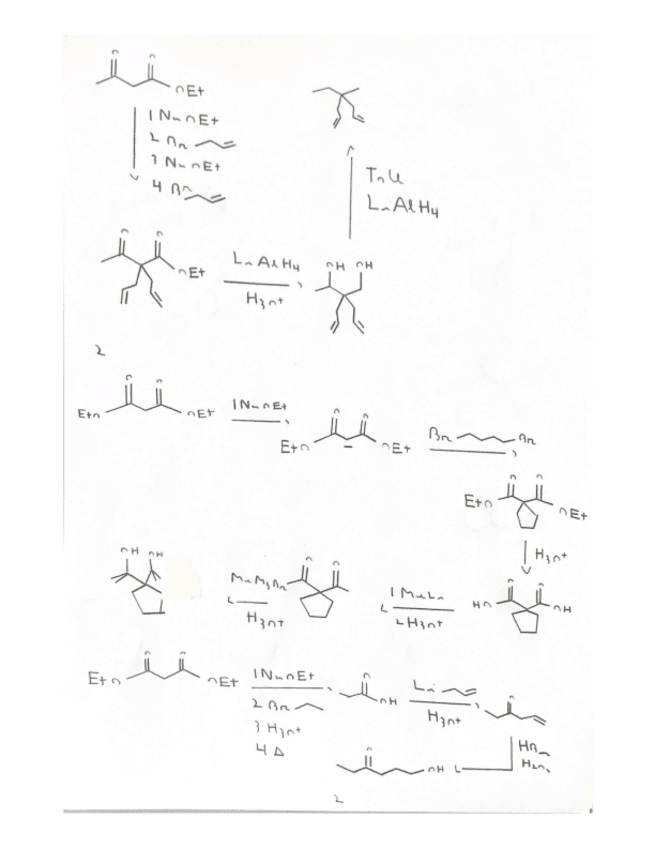 O O
OEt
1 NaOEt
2 Br
3 NaOEt
4 Br
TsCl
LiAlH4
O O
OEt
LiAlH4
H3O+
OH OH
2
O O
EtO OEt
1 NaOEt
O O
EtO OEt
Br Br
O O
EtO OEt
H3O+
OH OH
MeMgBr
H3O+
O O
1 MeLi
2 H3O+
O O
HO OH
O O
EtO OEt
1 NaOEt
2 Br
3 H3O+
4 Δ
O
OH
Li
H3O+
O
HBr
H2O2
O
OH
2